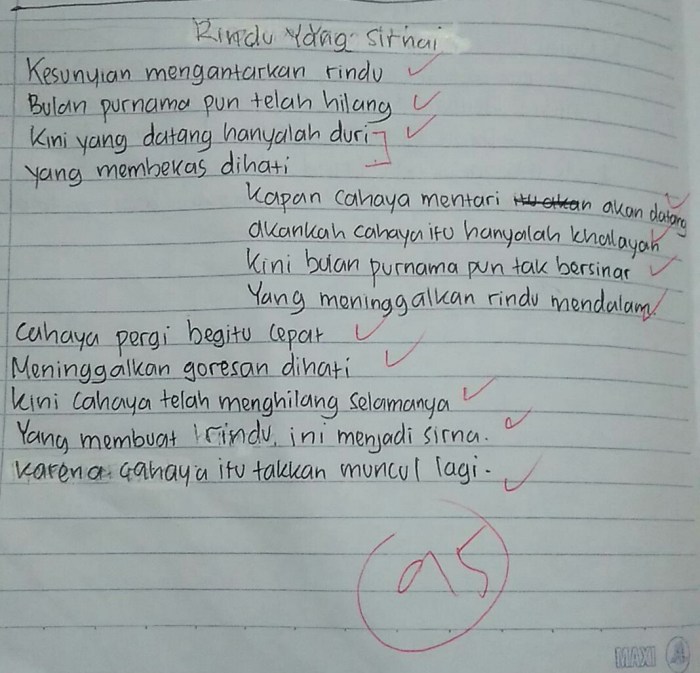 Rindu Yang Sirnai
Kesunyian mengantarkan rindu
Bulan purnama pun telah hilang
Kini yang datang hanyalah duri
yang membekas dihati
Kapan cahaya mentari itu akan akan datang
akankah cahaya itu hanyalah khalayah
Kini bulan purnama pun tak bersinar
Yang meninggalkan rindu mendalam
Cahaya pergi begitu cepat
Meninggalkan goresan dihati
Kini cahaya telah menghilang selamanya
Yang membuat rindu, ini menjadi sirna.
Karena cahaya itu takkan muncul lagi.
95
MAXI